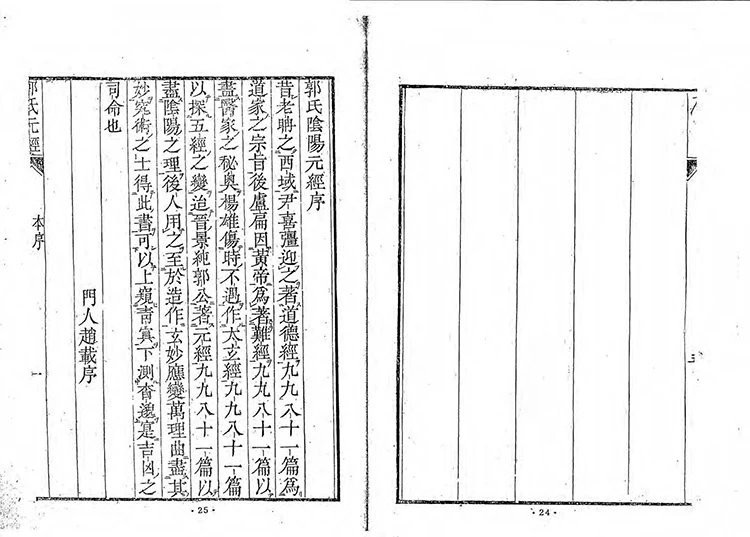 郭氏陰陽元經序
昔老聃之西域尹喜彊迎之著道德經九九八十一篇爲
道家之宗旨後盧扁因黃帝爲著難經九九八十一篇以
盡醫家之秘奥楊雄傷時不遇作太玄經九九八十一篇
以探五經之變迨晉景純郭公著元經九九八十一篇以
盡陰陽之理後人用之至於造作玄妙應變萬理曲盡其
妙究術之士得此書可以上窺青冥下測杳邈寔吉凶之
司命也
門人趙載序
郭氏元經
本序
一
·25·
·24·